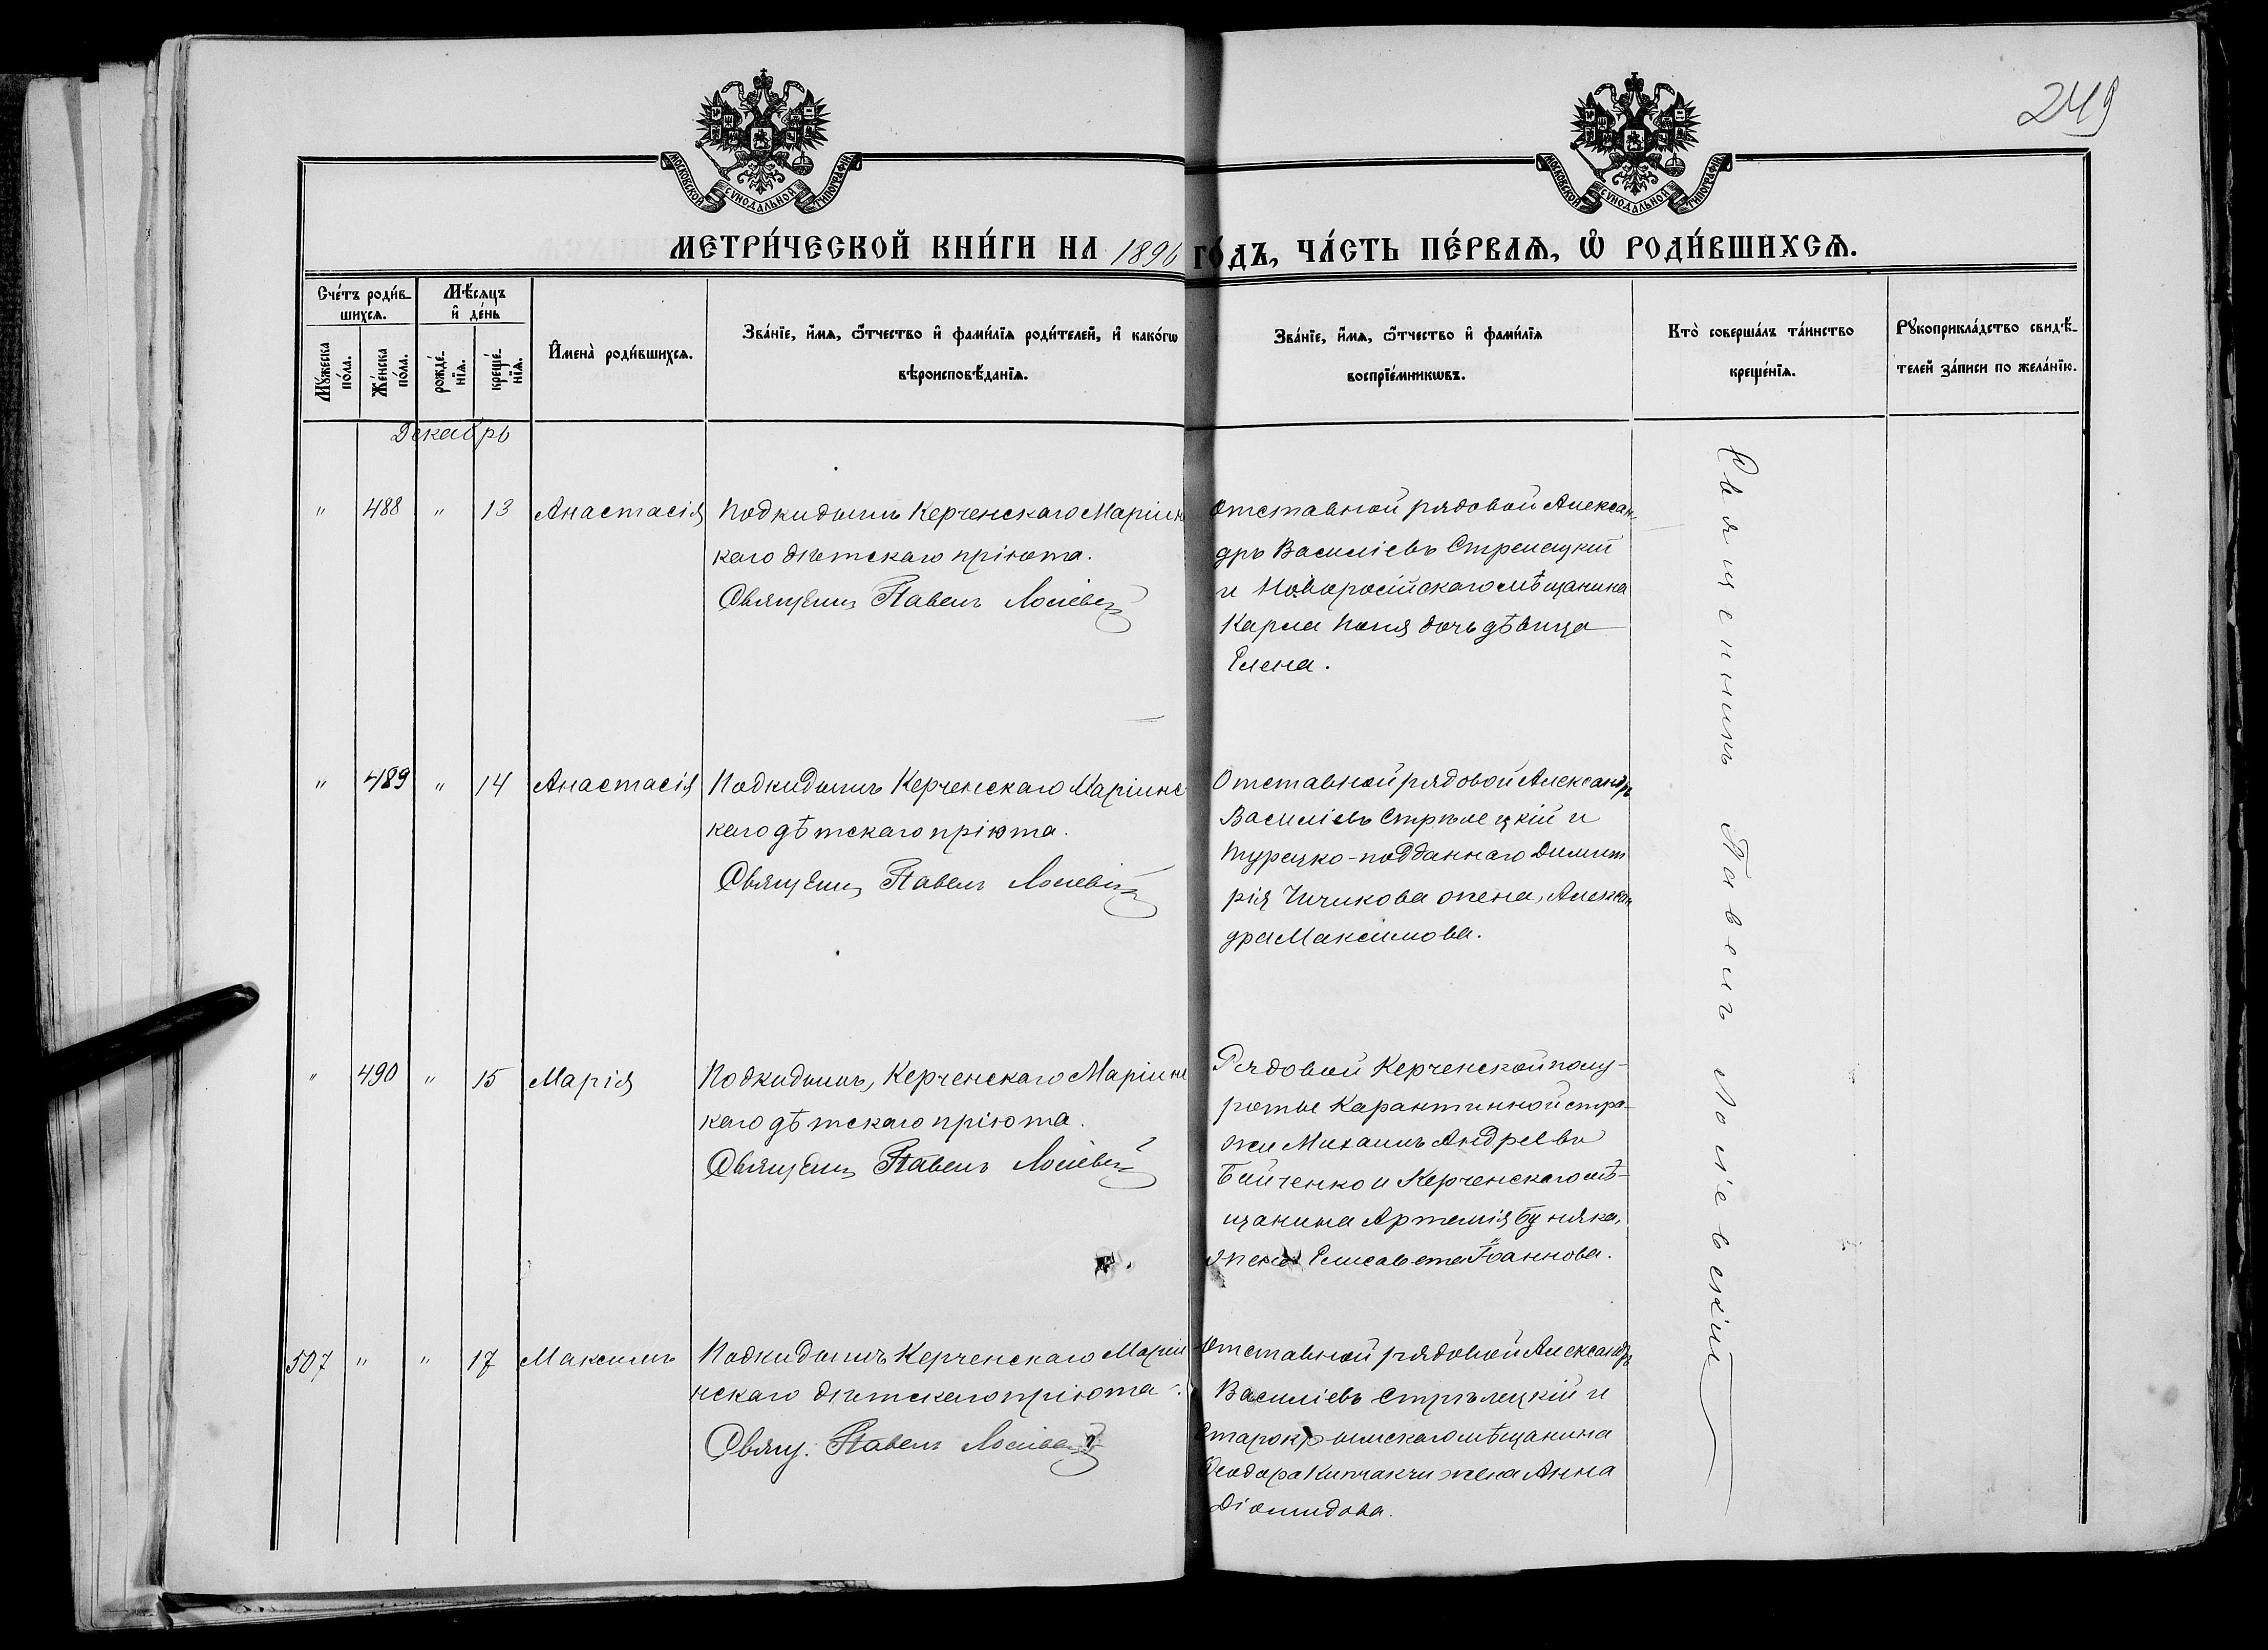 249
МОСКОВСКОЙ СѴНОДАЛЬНОЙ ТИПОГРАФІИ
МОСКОВСКОЙ СѴНОДАЛЬНОЙ ТИПОГРАФІИ
МЕТРИ́ЧЕСКОЙ КНИ́ГИ НА 1896 ГО́ДЪ, ЧА́СТЬ ПЕ́РВАѦ, Ѡ҆ РОДИ́ВШИХСѦ.
Сче́тъ роди́в-
шихсѧ.
Мꙋжеска по́ла.
Же́нска по́ла.
Мѣ́сяцъ
и҆ де́нь
рожде́-
нїѧ.
креще́-
нїѧ.
И҆мена̀ роди́вшихсѧ.
Зва́нїе, и҆́мѧ, ѻ҆́тчество и҆ фами́лїѧ роди́телей, и҆ како́гѡ
вѣроисповѣ́данїѧ.
Зва́нїе, и҆́мѧ, ѻ҆́тчество и҆ фами́лїѧ
воспрїе́мникѡвъ.
Кто̀ соверша́лъ та́инство
креще́нїѧ.
Рꙋкоприкла́дство свидѣ́-
телей за́писи по жела́нїю.
Декабрь
" 488 " 13 Анастасія
Подкидышъ Керченскаго Маріин
каго дѣтскаго пріюта.
Священ. Павелъ
Отставной рядовой Алексан-
дръ Василіевъ Стрелецкій
и Новоросійскаго мѣщанина
Карла дочь дѣвица
Елена.
" 489 " 14 Анастасія
Подкидышъ Керченскаго Маріинс
каго дѣтскаго пріюта.
Священ. Павелъ
Отставной рядовой Александръ
Василіевъ Стрѣлецкій и
турецко-подданнаго Димит
рія Чичикова жена, Алексан
дра Максимова.
" 490 " 15 Марія
Подкидышъ, Керченскаго Маріинс
каго дѣтскаго пріюта.
Священ. Павелъ
Рядовой Керченской полу-
роты Карантинной стра-
жи Михаилъ Андреевъ
Бойченко и Керченскаго мѣ-
щанина Артемія Буняка,
жена Елисавета Іоаннова.
507 " " 17 Максимъ
Подкидышъ Керченскаго Маріи
нскаго дѣтскаго пріюта.
Свящ. Павелъ
Отставной рядовой Александръ
Василіевъ Стрѣлецкій и
Старокрымскаго мѣщанина
Ѳеодора Кипчакчи жена Анна
Діомидова.
Священникъ Павелъ